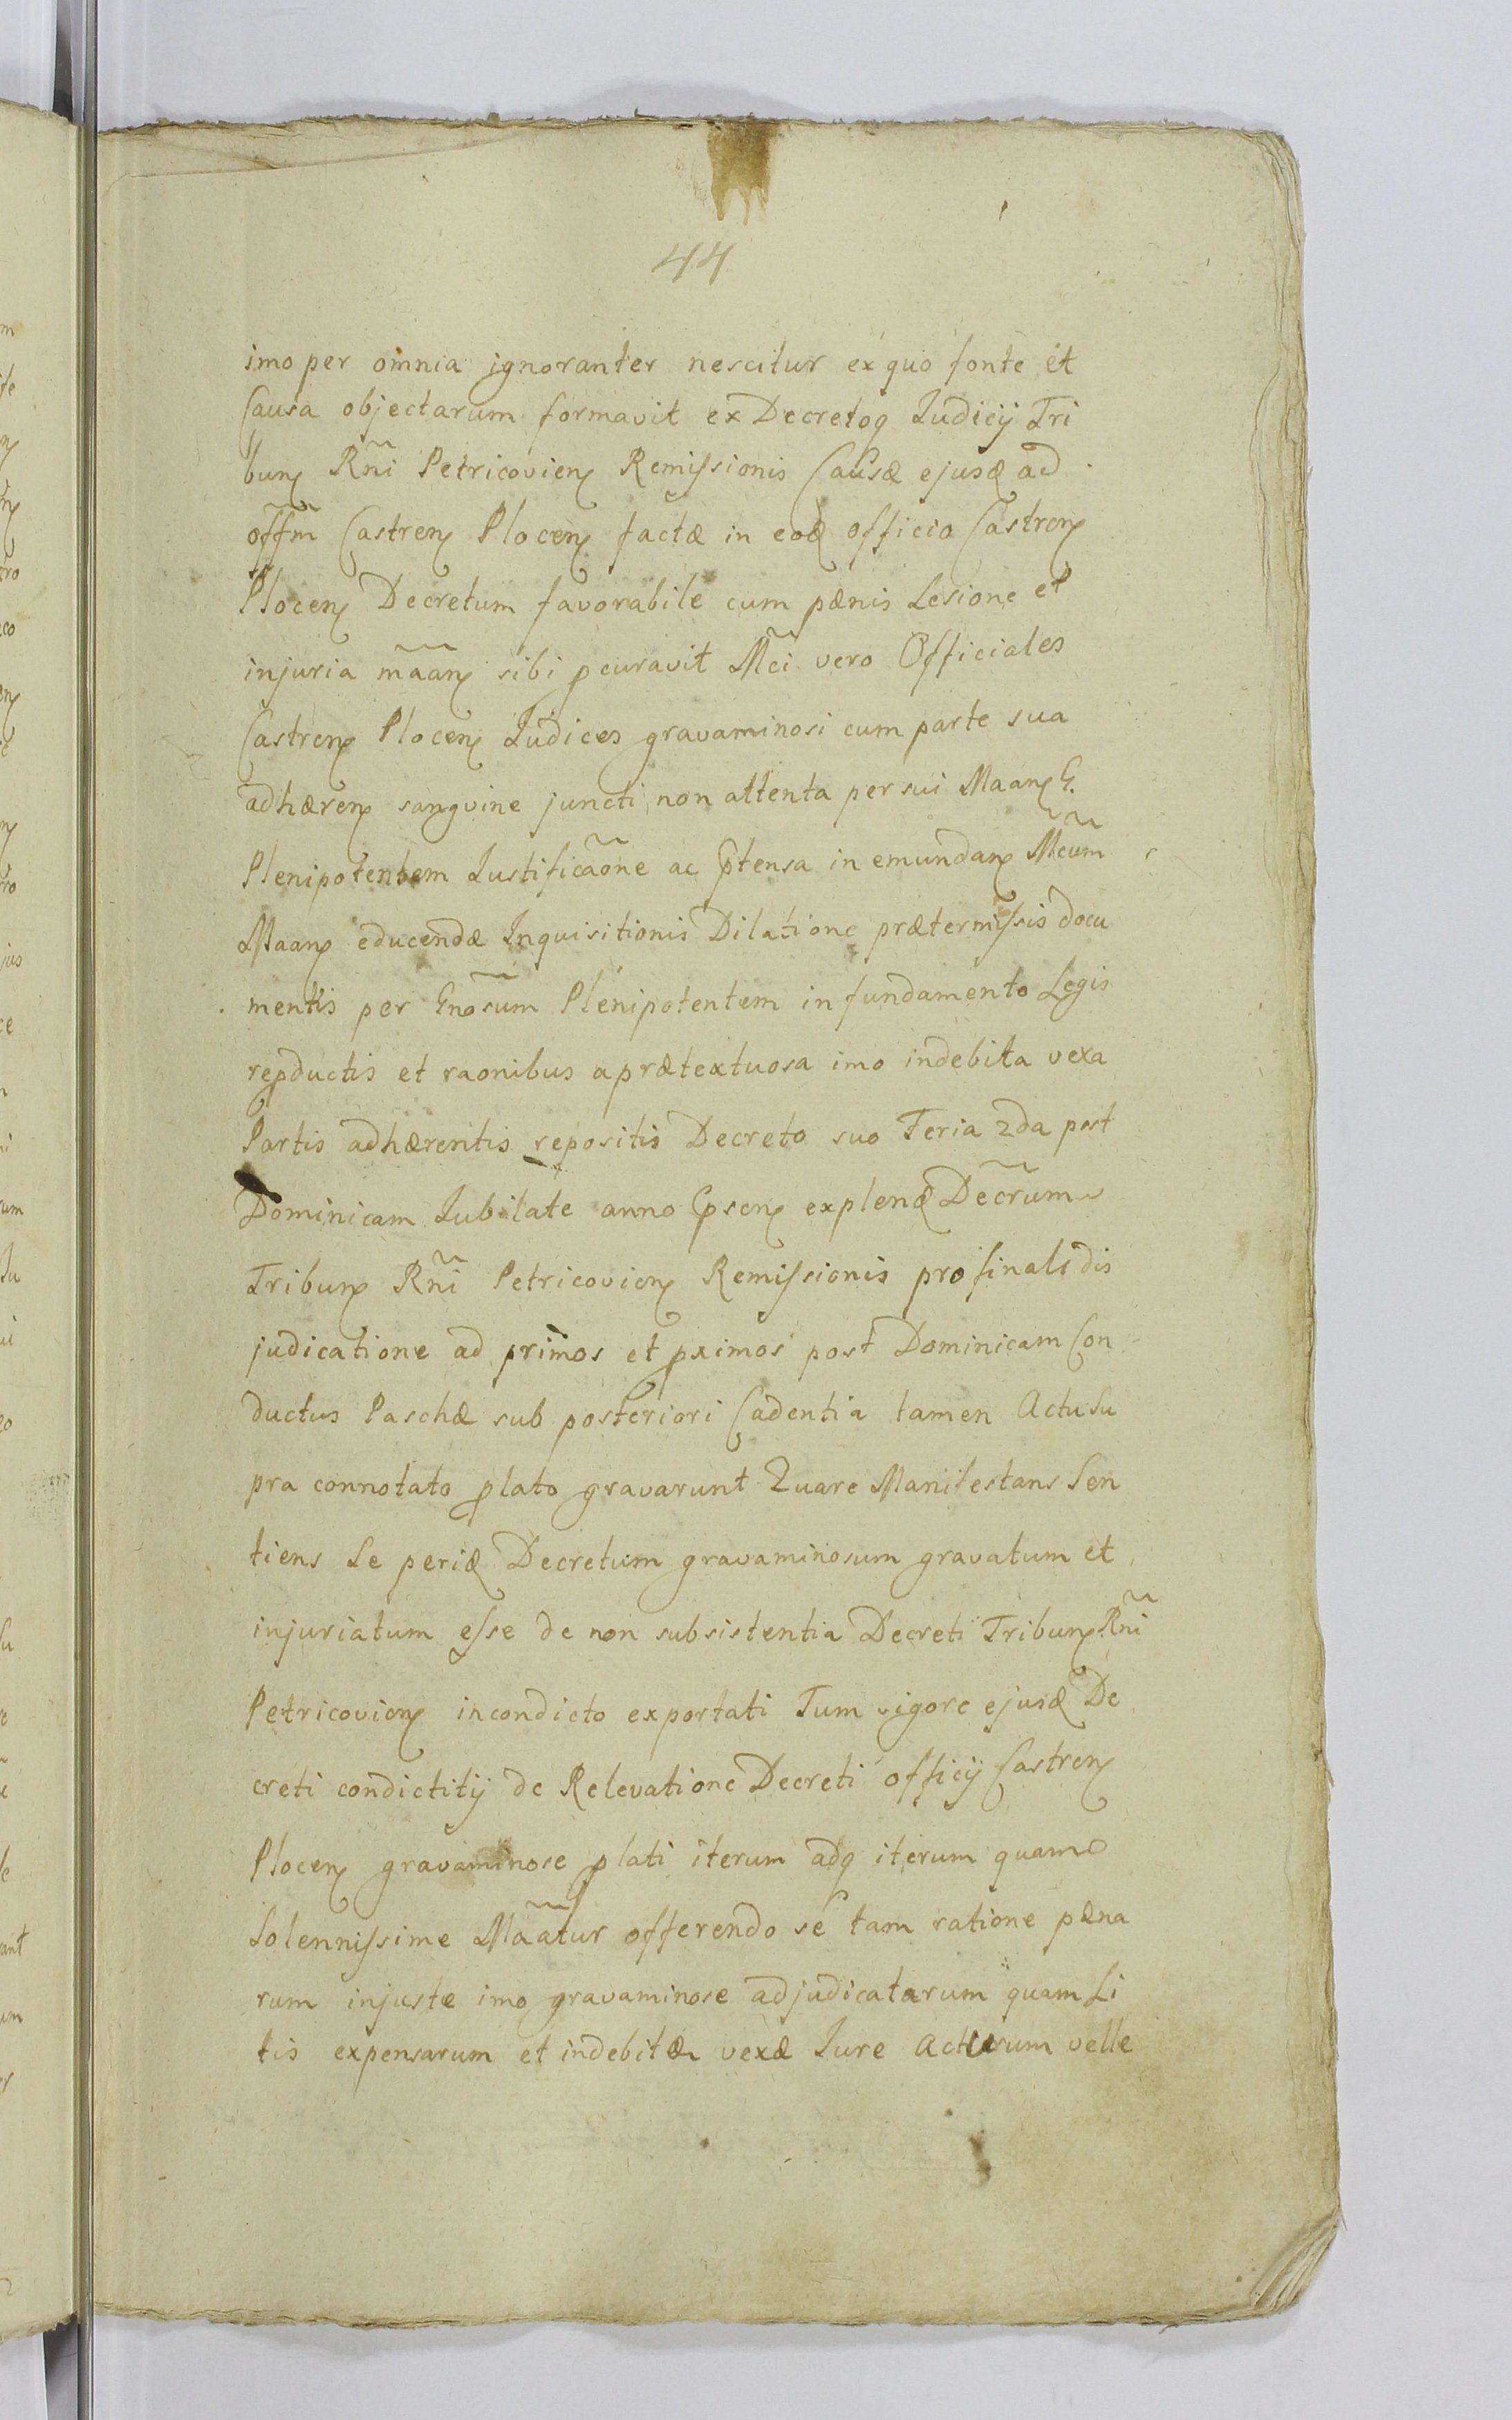 44
imo per omnia ignoranter nescitur ex quo fonte et
Causa objectarum formavit ex Decretoq Judicij Tri
bunꝭ Rñi Petricovienꝭ Remissionis Causæ ejusđ ad
offm̃ Castrenꝭ Plocenꝭ factæ in eođ officio Castrenꝭ
Plocenꝭ Decretum favorabile cum pænis Lesione et
injuria m̃aanꝭ sibi ꝓcuravit Mc̃i vero Officiales
Castrenꝭ Plocenꝭ Judices gravaminosi cum parte sua
adhærenꝭ sangvine juncti non attenta per sui Maanꝭ G.
Plenipotentem Justificãone ac Eptensa in emundanꝭ Mc̃um
Maanꝭ educendæ Inquisitionis Dilatione prætermissis docu
mentis per Gnõsum Plenipotentem in fundamento Legis
reꝓductis et raonibus a prætextuosa imo indebita vexa
Partis adhærentis repositis Decreto suo Feria 2da post
Dominicam Jubilate anno Epsenꝭ explenđ Decr̃um
Tribunꝭ Rñi Petricovienꝭ Remissionis pro finali dis
judicatione ad primos et ꝓximos post Dominicam Con
ductus Paschæ sub posteriori Cadentia tamen Actu Su
pra connotato ꝓlato gravarunt Quare Manifestans Sen
tiens Se per iđ Decretum gravaminosum gravatum et
injuriatum esse de non subsistentia Decreti Tribunꝭ Rñi
Petricovienꝭ incondicto exportati Tum vigore ejusđ De
creti condictitij de Relevatione Decreti officij Castrenꝭ
Plocenꝭ gravaminose ꝓlati iterum adq iterum quam
Solennissime Mãatur offerendo se tam ratione pæna
rum injuste imo gravaminose adjudicatarum quam Li
tis expensarum et indebitæ vexæ Jure Acturum velle